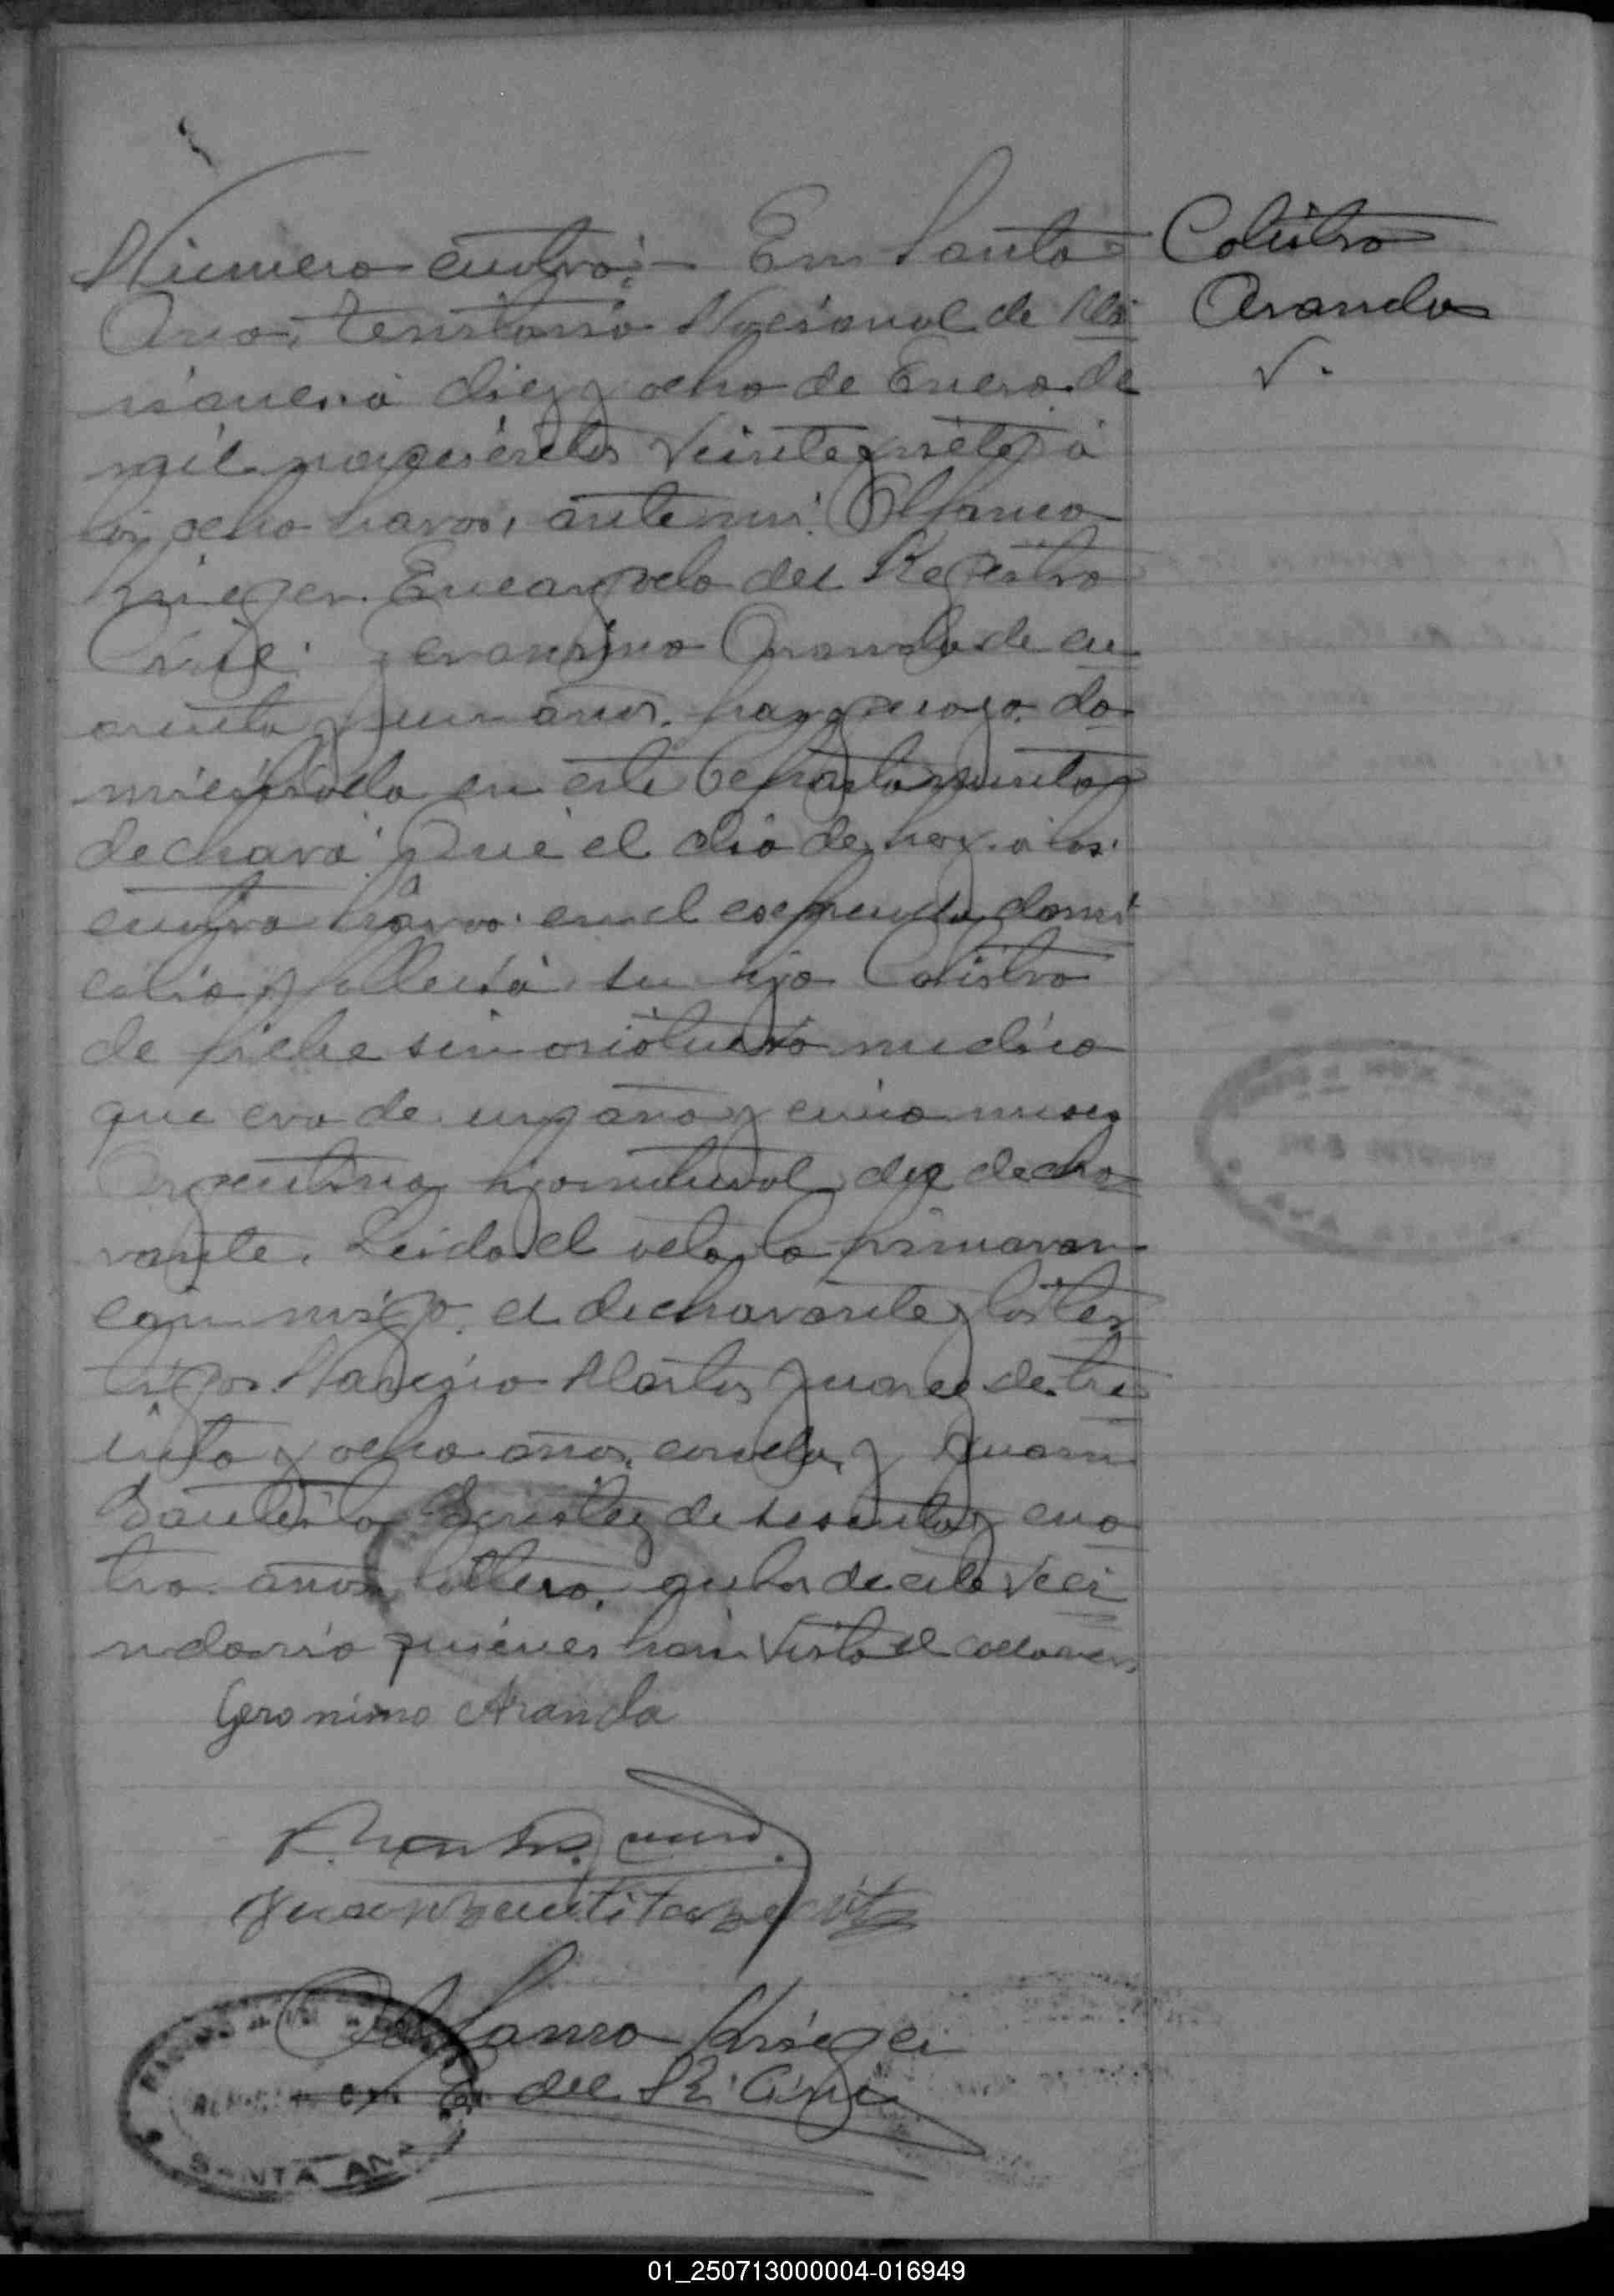 Número cuatro. En Santa
Ana, territorio Nacional de Mi
siones a diez y ocho de Enero de
mil novecientos veinte y siete, a
las ocho horas, ante mi
Krieger Encargado del Registro
Civil: Geronimo Aranda de cu
arenta y un años, paraguayo, do
miciliado en este Departamento
declara: Que el dia de hoy a las
cuatro horas en el expresado domi
cilio falleció su hijo Calistro
de fiebre sin asistencia medica
que era de un año y cinco meses
Argentino, hijo natural del decla
rante. Leida el acta, la firmaron
conmigo, el declarante y los tes
tigos Narciso Montes Juarez de tre
inta y ocho años, casado, y Juan
Bautista Benitez de sesenta y cua
tro años, soltero, ambos de este veci
ndario quienes han visto el cadaver.
Geronimo Aranda
Juan Bautista Benitez
Krieger
E. del R. Civil
SANTA ANA
Calistro
Aranda
01_250713000004-016949